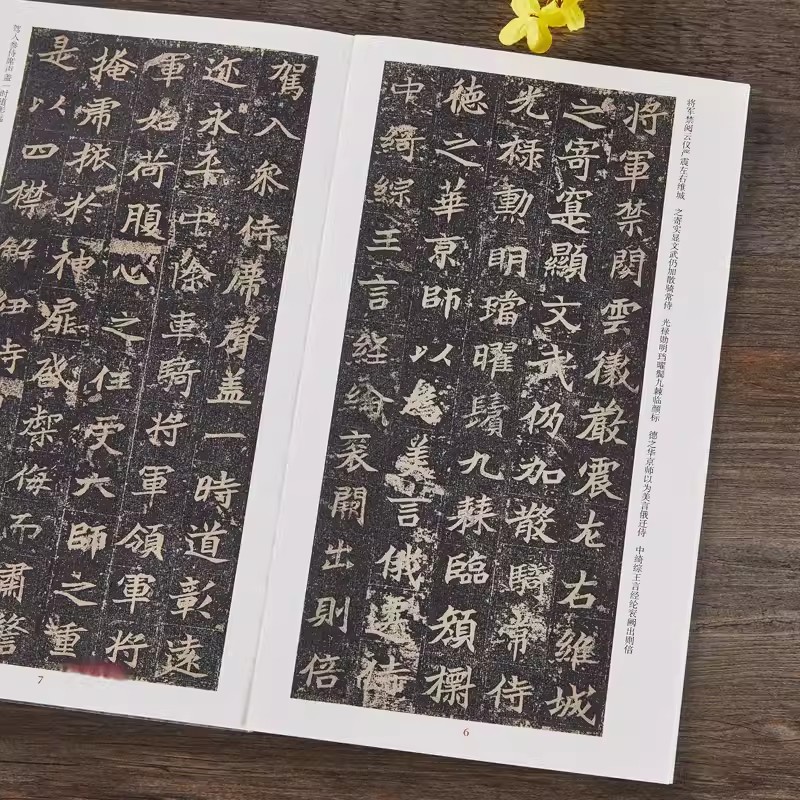 将军禁阅云仪严震左右维城　之寄实显文武仍加散骑常侍　光禄勋明珰曜鬓九棘临颜标　德之华京师以为美言俄迁侍　中绮综王言经纶衮阙出则倍
將軍禁閣雲儀嚴震左右維城
之寄寔顯文武仍加散騎常侍
光祿勳明璫曜鬢九棘臨顏標
德之華京師以為美言俄遷侍
中綺綜王言經綸袞闕出則倍
6
駕入參侍席聲蓋一時道彰遠
迩永平中除車騎將軍領軍將
軍始荷腹心之任受六師之重
掩虎旅於神扉啟禦侮而肅警
是以四棋解
7
驾入参侍席声盖一时道彰远